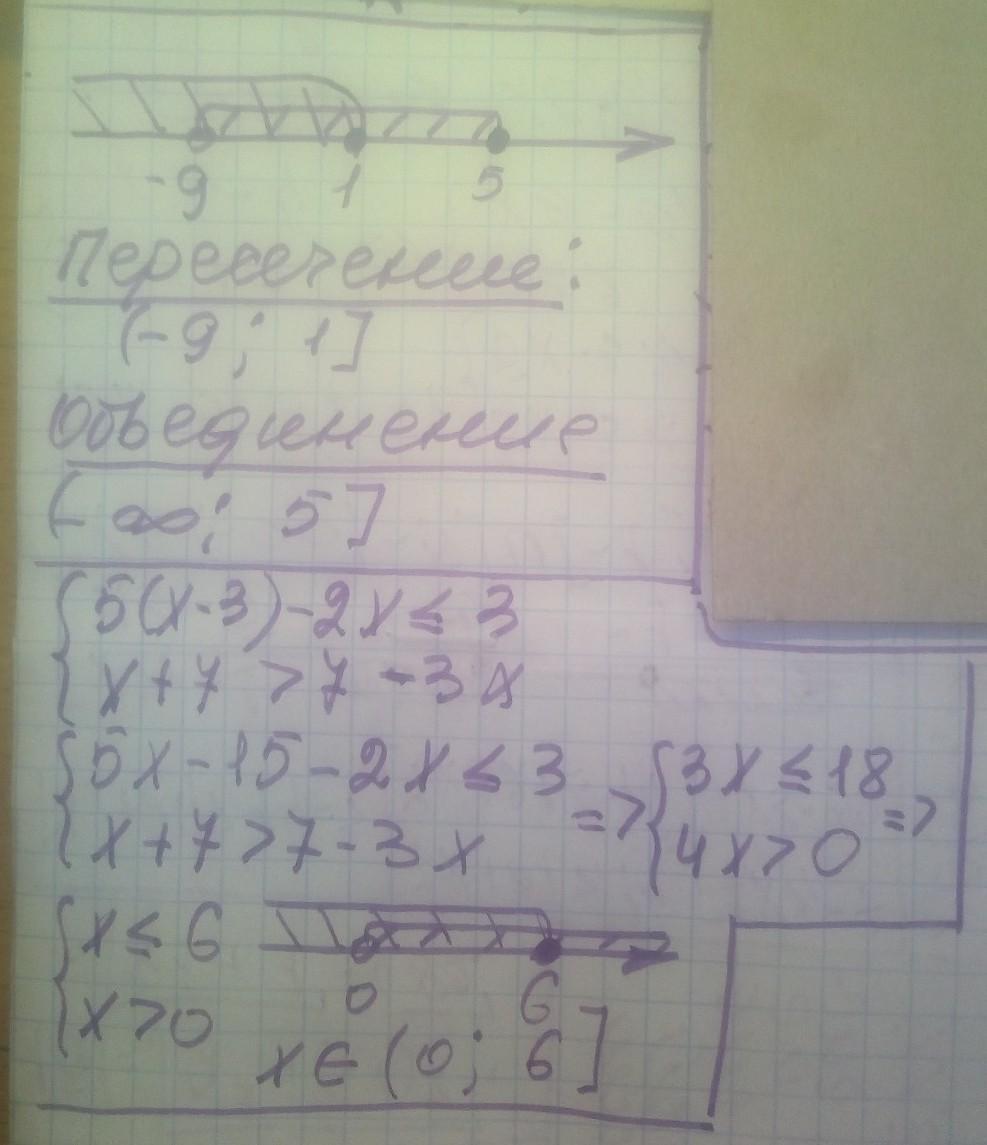 -9 1 5
Пересечение:
(-9; 1]
Объединение
(-∞; 5]
{5(x-3)-2x≤3
{x+7>7-3x
{5x-15-2x≤3 => {3x≤18 =>
{x+7>7-3x {4x>0
{x≤6
{x>0
0 6
x∈(0; 6]